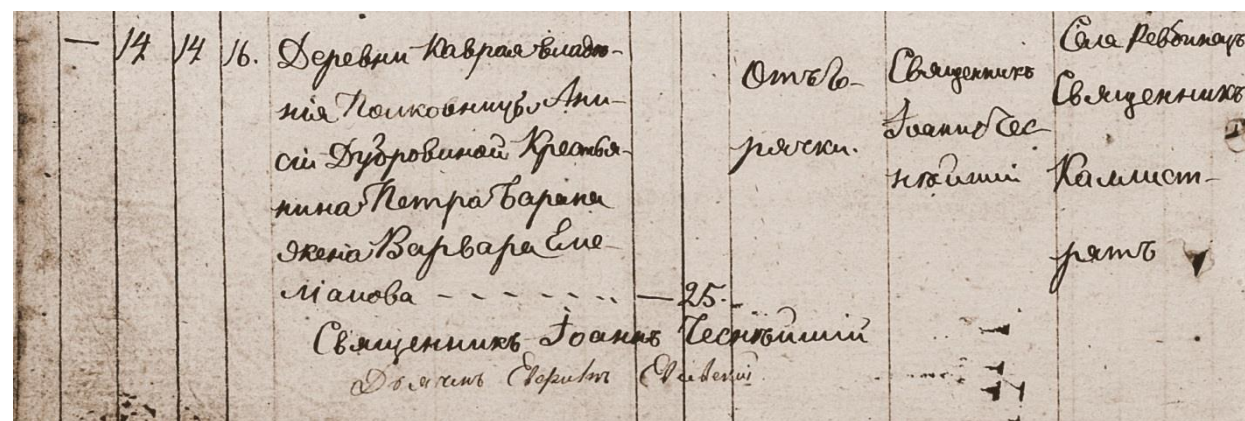 — 14 14 16. Деревни Каврая владѣ-
нія Полковницы Ани-
сіи Дубровиной Крестья-
нина Петра Барана
жена Варвара Еме-
ліанова - - - - - — 25.
Отъ Го-
рячки.
Священникъ
Іоаннъ Чес-
нѣйшій
Села
Священникъ
Каллист-
ратъ
Священникъ Іоаннъ Чеснѣйшій
Дьячекъ